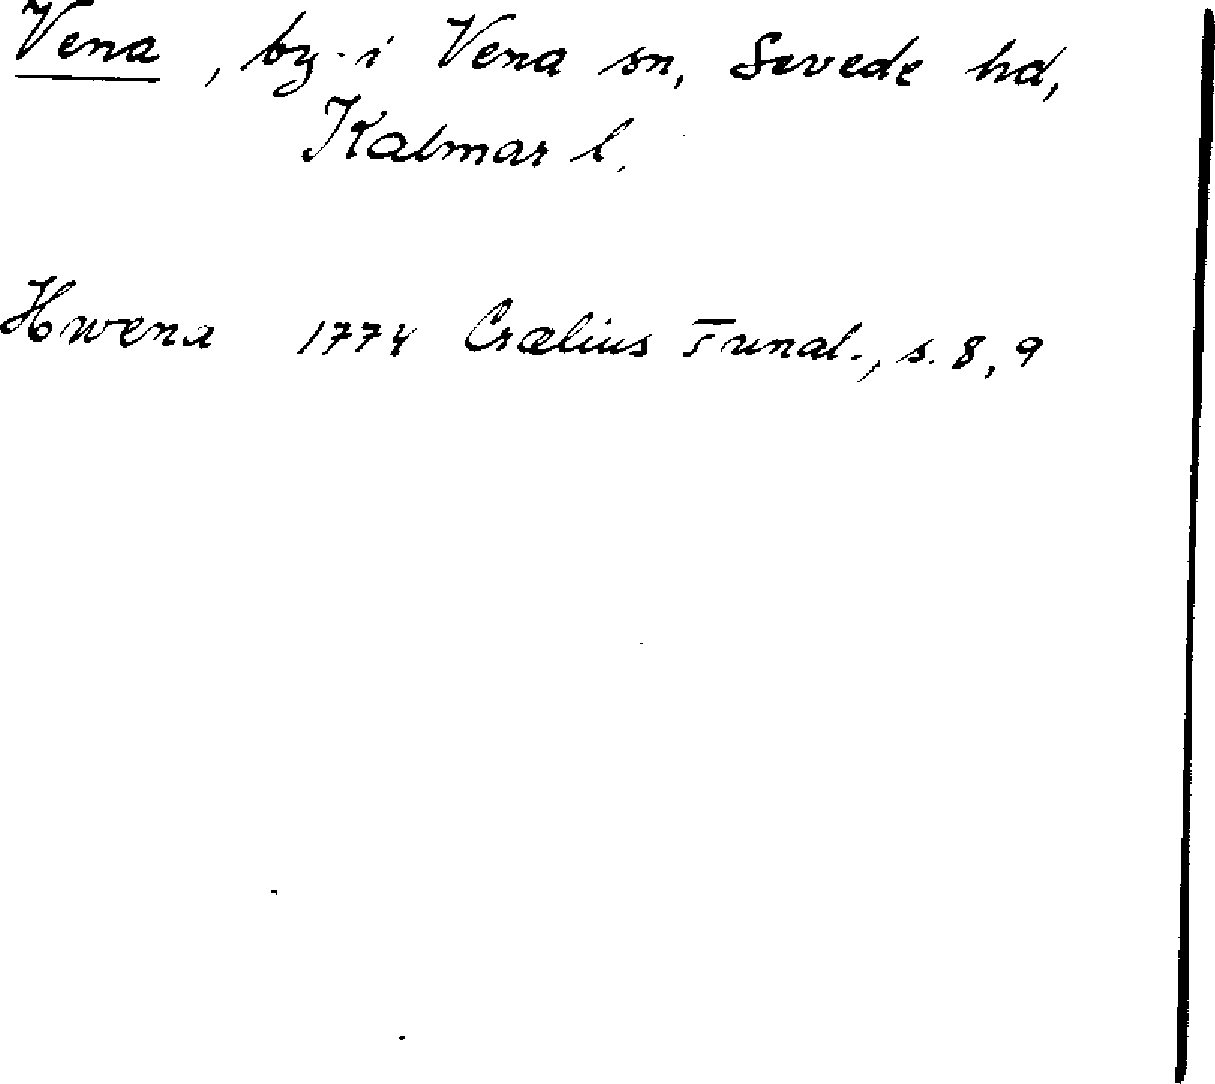 Vena, by i Vena sn, Sevede hd,
Kalmar l.
Hwena 1774 Crælius Tunal., s. 8, 9